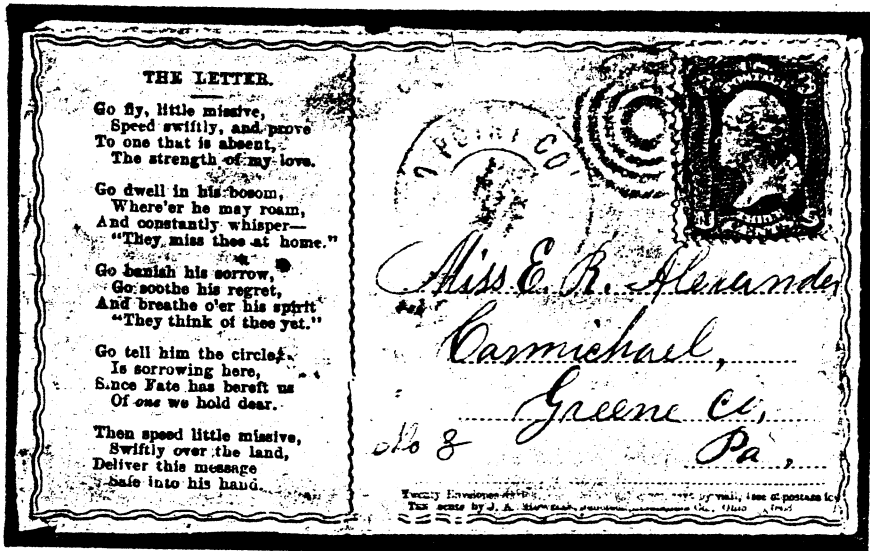 THE LETTER.
Go fly, little missive,
Speed swiftly, and prove
To one that is absent,
The strength of my love.
Go dwell in his bosom,
Where'er he may roam,
And constantly whisper—
"They miss thee at home."
Go banish his sorrow,
Go soothe his regret,
And breathe o'er his spirit
"They think of thee yet."
Go tell him the circle
Is sorrowing here,
Since Fate has bereft us
Of one we hold dear.
Then speed little missive,
Swiftly over the land,
Deliver this message
Safe into his hand.
POINT CO
Miss E. R. Alexander
Carmichael,
Greene Co,
Pa,
No 8
Twenty Envelopes by mail, free of postage for
Ten cents by J. A. Co., Ohio